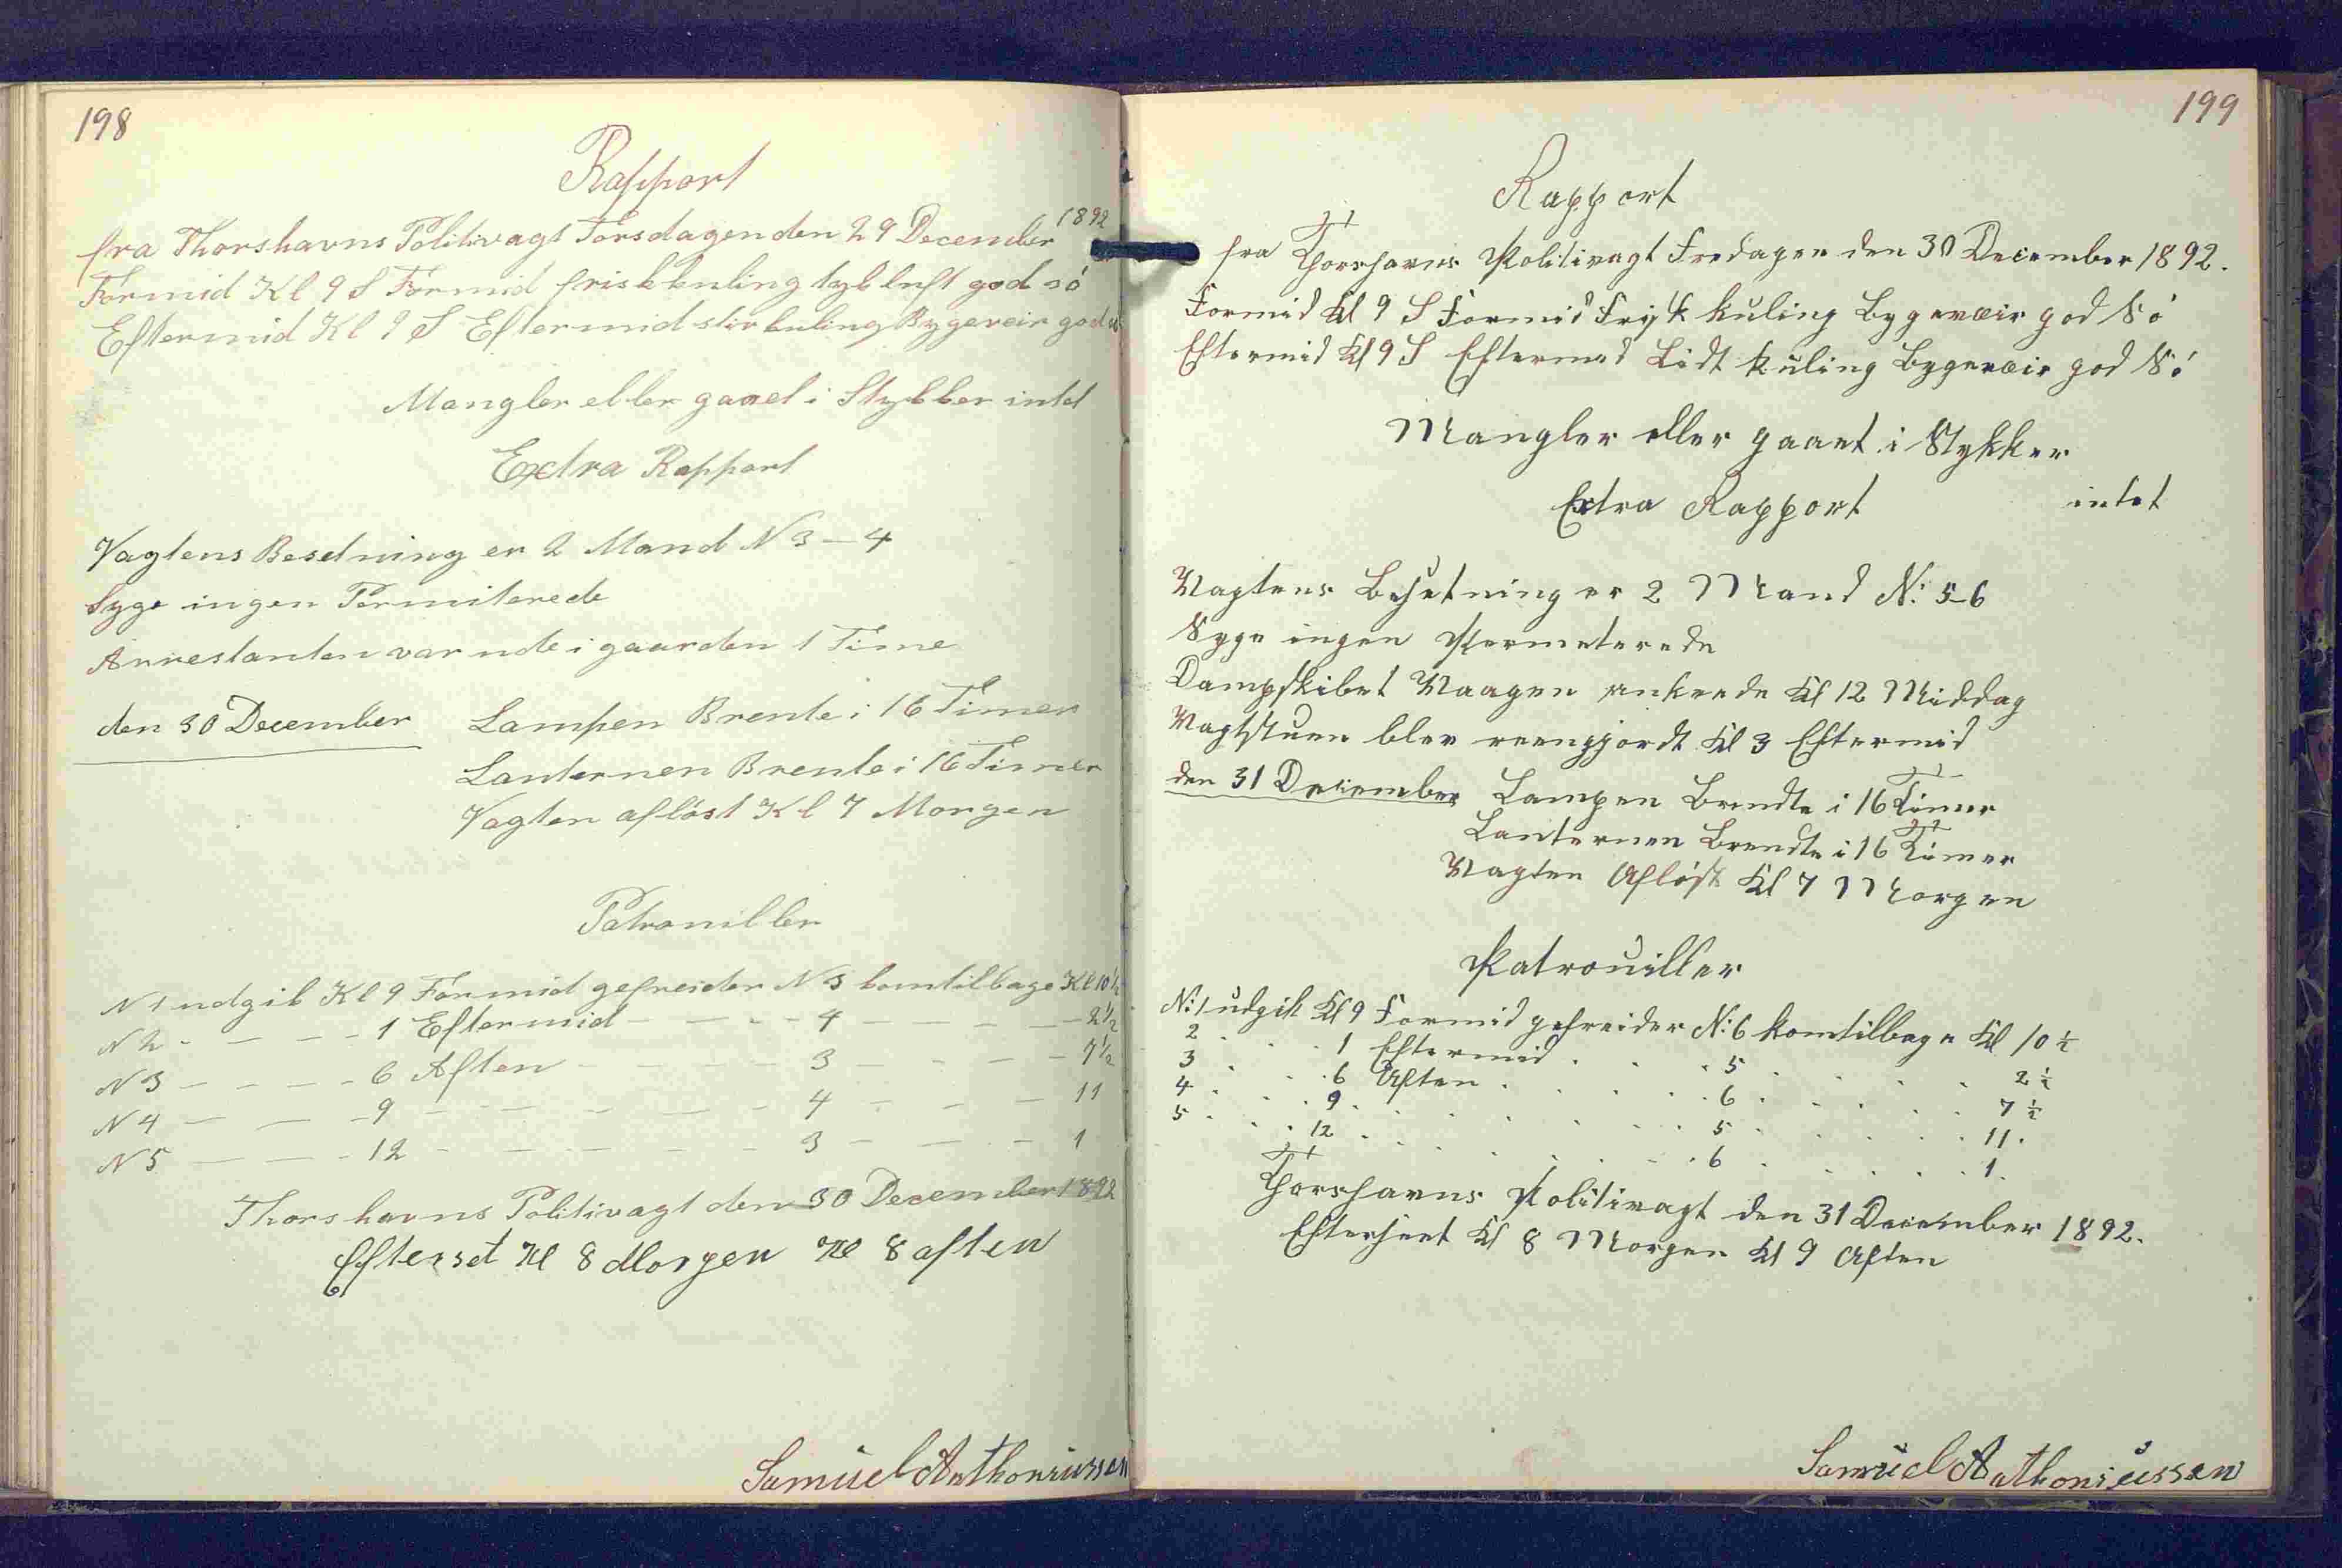 198
Rapport
fra Thorshavns Politivagt Torsdagen den 29 December 1892
Formid Kl 9 S Formid frisk kuling tyk luft god sö
Eftermid Kl 9 S Eftermid stiv kuling Bygeveir god sö
Mangler eller gaaed i Stykker intd
Exctra Rapport
Vagtens Besetning er 2 Mand N 3 — 4
Syge ingen Permiterede
Arrestanten var ude i gaarden 1 Time
den 30 December Lampen Brente i 16 Timer
Lanternen Brente i 16 Timer
Vagten aflöst Kl 7 Morgen
Patrouiller
N 1 udgik Kl 9 Formid gefreider N 3 komtilbage Kl 10 1/2
N 2 - — — - 1 Eftermid — — - - 4 — — — — 2 1/2
N 3 — — — - 6 Aften — — — — 3 — — — — 7 1/2
N 4 — — — 9 — — — — — 4 — — — 11
N 5 — — — - 12 — — — — — 3 — — — 1
Thorshavns Politivagt den 30 December 1892
Efterset Kl 8 Morgen Kl 8 aften
Samuel Anthoniussen
199
Rapport
fra Thorshavns Politivagt Fredagen den 30 December 1892.
Formid Kl 9 S Formid Frisk kuling Bygeræir god Sö
Eftermid Kl 9 S Eftermed Lidt kuling Bygeræir god Sö
Mangler eller gaaet i Stykker
Extra Rapport intet
Vagtens Besetning er 2 Mand N: 5-6
Syge ingen Permeterede
Dampskibet Vaagen ankrede Kl 12 Middag
Vagtstuen blev reengjordt Kl 3 Eftermid
den 31 December Lampen Brendte i 16 Timer
Lanternen Brendte i 16 Timer
Vagten Aflöst Kl 7 Morgen
Patrouiller
N: 1 udgik Kl 9 Formid gefreider N: 6 komtilbage Kl 10 1/2
2 . . . 1 Eftermid . . . 5 . . . . 2 1/2
3 . . . 6 Aften . . . . 6 . . . . 7 1/2
4 . . . 9 . . . . . . 5 . . . . 11.
5 . . . 12 . . . . . . 6 . . . . 1.
Thorshavns Politivagt den 31 December 1892.
Efterseet Kl 8 Morgen Kl 9 Aften
Samuel Anthoniussen